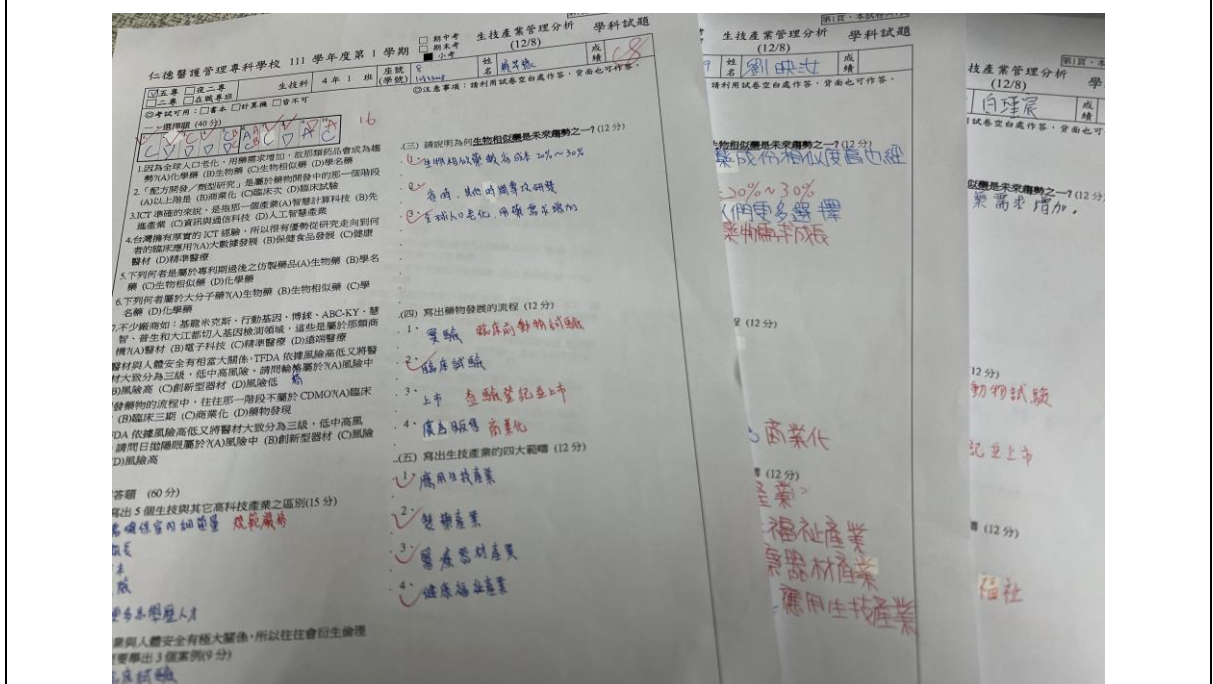 仁德醫護管理專科學校 111 學年度第 1 學期
□期中考
□期末考
■小考
生技產業管理分析 學科試題
(12/8)
☑五專 □夜二專
□二專 □在職專班
生技科 4 年 1 班
座號
(學號)
8
姓名
成績
◎考試可用：□書本 □計算機 □皆不可
◎注意事項：請利用試卷空白處作答，背面也可作答。
一、選擇題 (40 分)
16
1.因為全球人口老化，用藥需求增加，故那類藥品會成為趨
勢?(A)化學藥 (B)生物藥 (C)生物相似藥 (D)學名藥
2.「配方開發／劑型研究」是屬於藥物開發中的那一個階段
(A)以上皆是 (B)商業化 (C)臨床次 (D)臨床試驗
3.ICT 準確的來說，是指那一個產業(A)智慧計算科技 (B)先
進產業 (C)資訊與通信科技 (D)人工智慧產業
4.台灣擁有厚實的 ICT 經驗，所以很有優勢從研究走向到何
者的臨床應用?(A)大數據發展 (B)保健食品發展 (C)健康
醫材 (D)精準醫療
5.下列何者是屬於專利期過後之仿製藥品(A)生物藥 (B)學名
藥 (C)生物相似藥 (D)化學藥
6.下列何者屬於大分子藥?(A)生物藥 (B)生物相似藥 (C)學
名藥 (D)化學藥
7.不少廠商如：基龍米克斯、行動基因、博錸、ABC-KY、慧
智、普生和大江都切入基因檢測領域，這些是屬於那類商
機?(A)醫材 (B)電子科技 (C)精準醫療 (D)遠端醫療
醫材與人體安全有相當大關係，TFDA 依據風險高低又將醫
材大致分為三級，低中高風險，請問輪椅屬於?(A)風險中
(B)風險高 (C)創新型器材 (D)風險低
發藥物的流程中，往往那一階段不屬於 CDMO?(A)臨床
(B)臨床三期 (C)商業化 (D)藥物發現
FDA 依據風險高低又將醫材大致分為三級，低中高風
請問日拋隱眼屬於?(A)風險中 (B)創新型器材 (C)風險
(D)風險高
答題 (60 分)
寫出 5 個生技與其它高科技產業之區別(15 分)
需確保室內細菌量 規範嚴格
長
本
險
更多高學歷人才
業與人體安全有極大關係，所以往往會衍生倫理
要舉出 3 個案例(9 分)
臨床試驗
(三) 請說明為何生物相似藥是未來趨勢之一? (12 分)
1. 生物相似藥較省成本 20%～30%
2. 省時，其他時間專攻研發
3. 全球人口老化，用藥需求增加
(四) 寫出藥物發展的流程 (12 分)
1. 實驗 臨床前動物試驗
2. 臨床試驗
3. 上市 查驗登記至上市
4. 廣為販售 商業化
(五) 寫出生技產業的四大範疇 (12 分)
1. 應用生技產業
2. 製藥產業
3. 醫療器材產業
4. 健康福祉產業
生技產業管理分析 學科試題
(12/8)
9
姓名
劉映汝
成績
請利用試卷空白處作答，背面也可作答。
生物相似藥是未來趨勢之一? (12 分)
藥成份相似度高也經
20%～30%
人們更多選擇
藥物需求成長
程 (12 分)
商業化
疇 (12 分)
產業
福祉產業
療器材產業
應用生技產業
技產業管理分析 學
(12/8)
成績
試卷空白處作答，背面也可
似藥是未來趨勢之一? (12 分)
藥需求增加。
12 分)
動物試驗
記至上市
疇 (12 分)
福祉